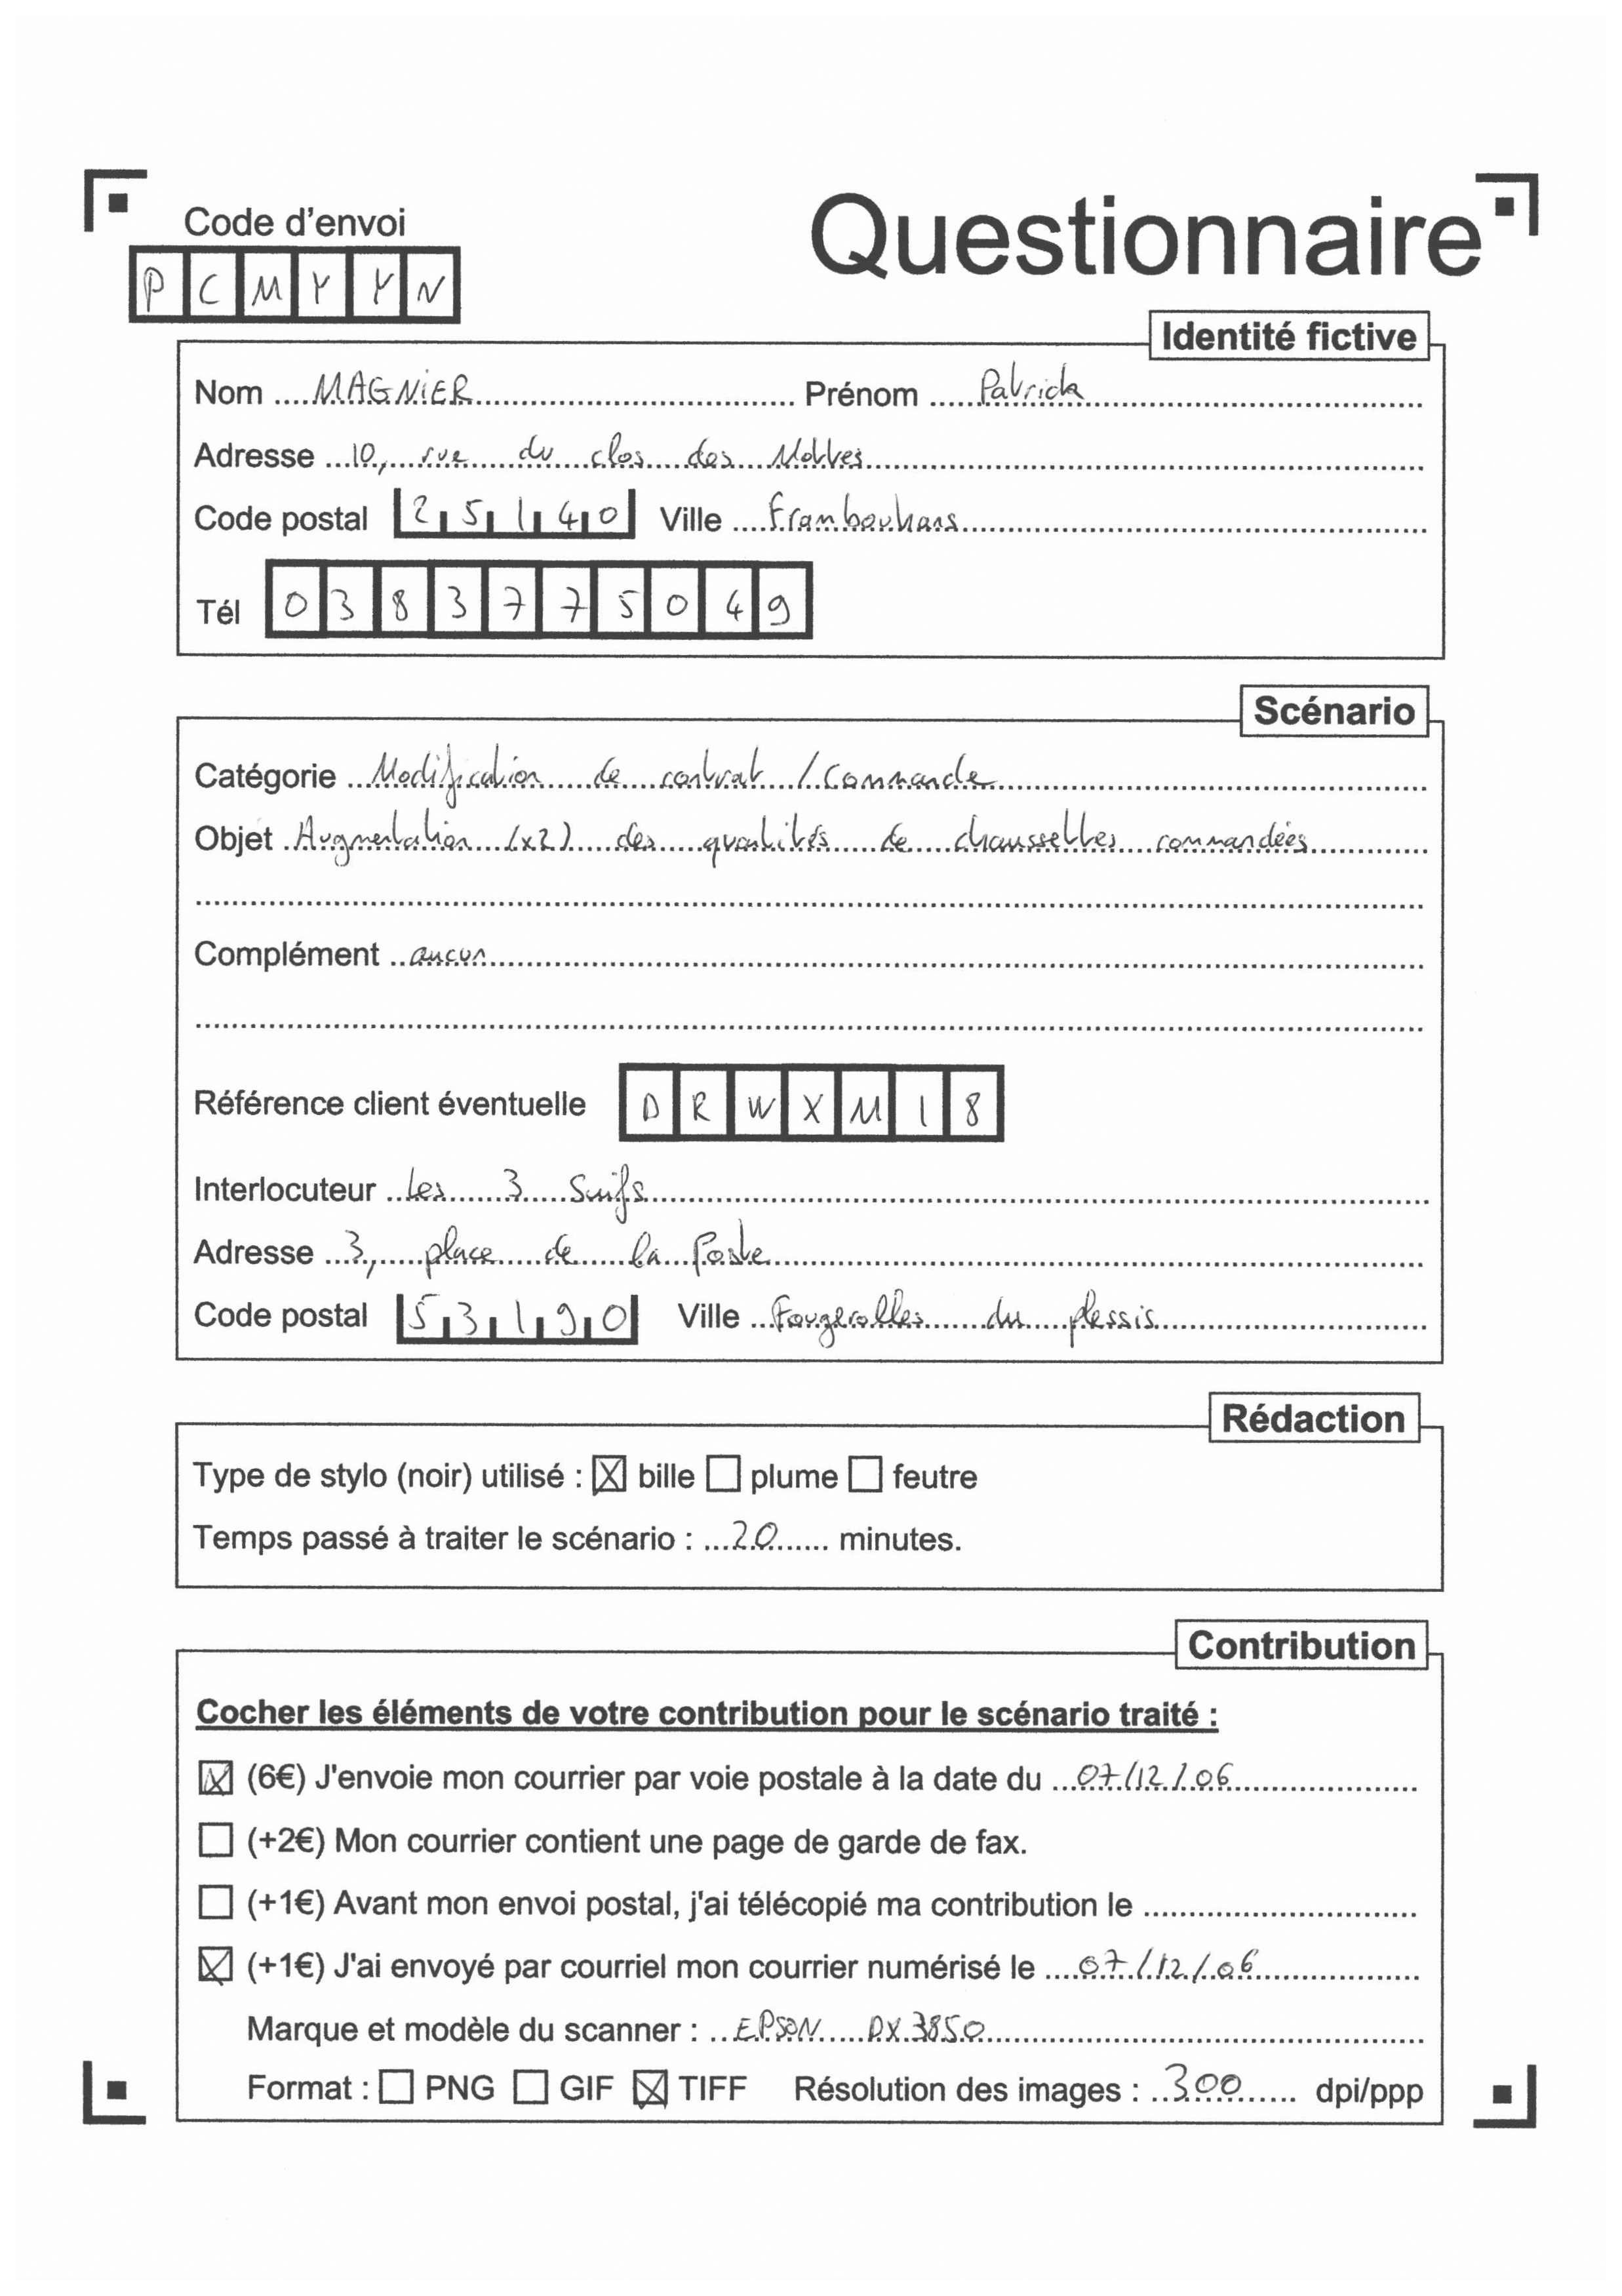 Code d'envoi
Questionnaire
P C M Y Y N
Identité fictive
Nom MAGNIER Prénom Patrick
Adresse 10, rue du clos des
Code postal 25140 Ville Frambouhans
Tél 0383775049
Scénario
Catégorie Modification de contrat / Commande
Objet Augmentation (x2) des quantités de chaussettes commandées
Complément aucun
Référence client éventuelle D R W X M 1 8
Interlocuteur Les 3 Suifs
Adresse 3, place de la Poste
Code postal 53190 Ville Fougerolles du plessis
Rédaction
Type de stylo (noir) utilisé : ☒ bille ☐ plume ☐ feutre
Temps passé à traiter le scénario : 20 minutes.
Contribution
Cocher les éléments de votre contribution pour le scénario traité :
☒ (6€) J'envoie mon courrier par voie postale à la date du 07/12/06
☐ (+2€) Mon courrier contient une page de garde de fax.
☐ (+1€) Avant mon envoi postal, j'ai télécopié ma contribution le
☒ (+1€) J'ai envoyé par courriel mon courrier numérisé le 07/12/06
Marque et modèle du scanner : EPSON DX3850
Format : ☐ PNG ☐ GIF ☒ TIFF Résolution des images : 300 dpi/ppp